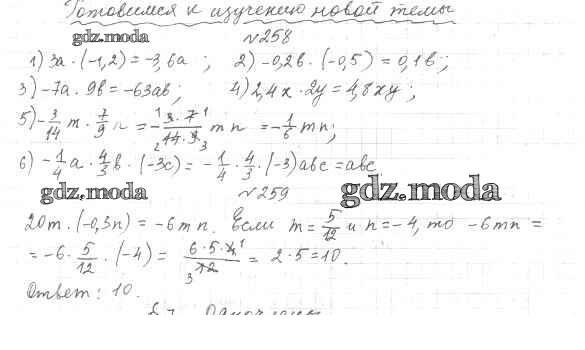 Готовимся к изучению новой темы
gdz.moda №258
1) 3a · (-1,2) = -3,6a ; 2) -0,2b · (-0,5) = 0,1b ;
3) -7a · 9b = -63ab ; 4) 2,4x · 2y = 4,8xy ;
5) -3/14 m · 7/9 n = -3·7/14·9 mn = -1/6 mn ;
6) -1/4 a · 4/3 b · (-3c) = -1/4 · 4/3 · (-3) abc = abc
gdz.moda №259 gdz.moda
20m · (-0,3n) = -6mn. Если m = 5/12 и n = -4, то -6mn =
= -6 · 5/12 · (-4) = 6·5·4/12 = 2·5 = 10.
Ответ: 10.